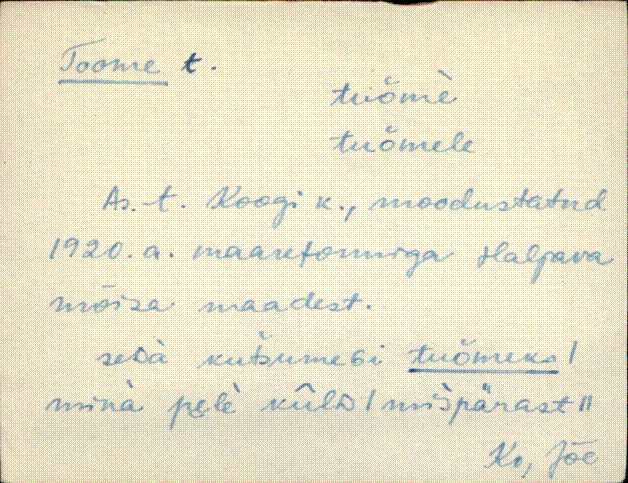 Toome t.
tuŏmè
tuŏmele
As.-t. Koogi k., moodustatud
1920. a. maareformiga Haljava
mõisa maadest.
kutsume
tuŏmeks |
minà pęlè | mispärast ||
Ko, Jõe